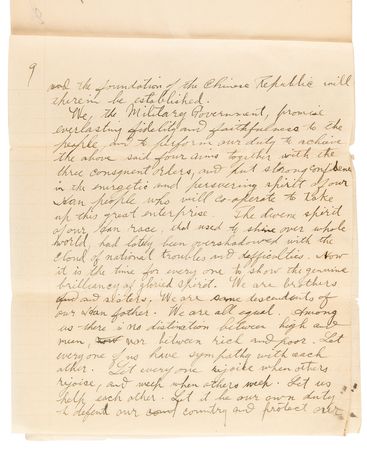 9
and the foundation of the Chinese Republic will
therein be established.
We, the Military Government, promise
everlasting fidelity and faithfulness to the
people, and to perform our duty to achieve
the above said four aims together with the
three consequent orders, and put strong confidence
in the energetic and persevering spirit of our
Han people who will co-operate to take
up this great enterprise. The divine spirit
of our Han race, that used to shine over whole
world, had lately been overshadowed with the
cloud of national troubles and difficulties. Now
it is the time for every one to show the genuine
brilliancy of spirit. We are brothers
and sisters, We are descendants of
our Han father. We are all equal. Among
us there is no distination between high and
mean, nor between rich and poor. Let
everyone of us have sympathy with each
other. Let every one rejoice when others
rejoise, and weep when others weep. Let us
help each other. Let it be our own duty
to defend our country and protect our